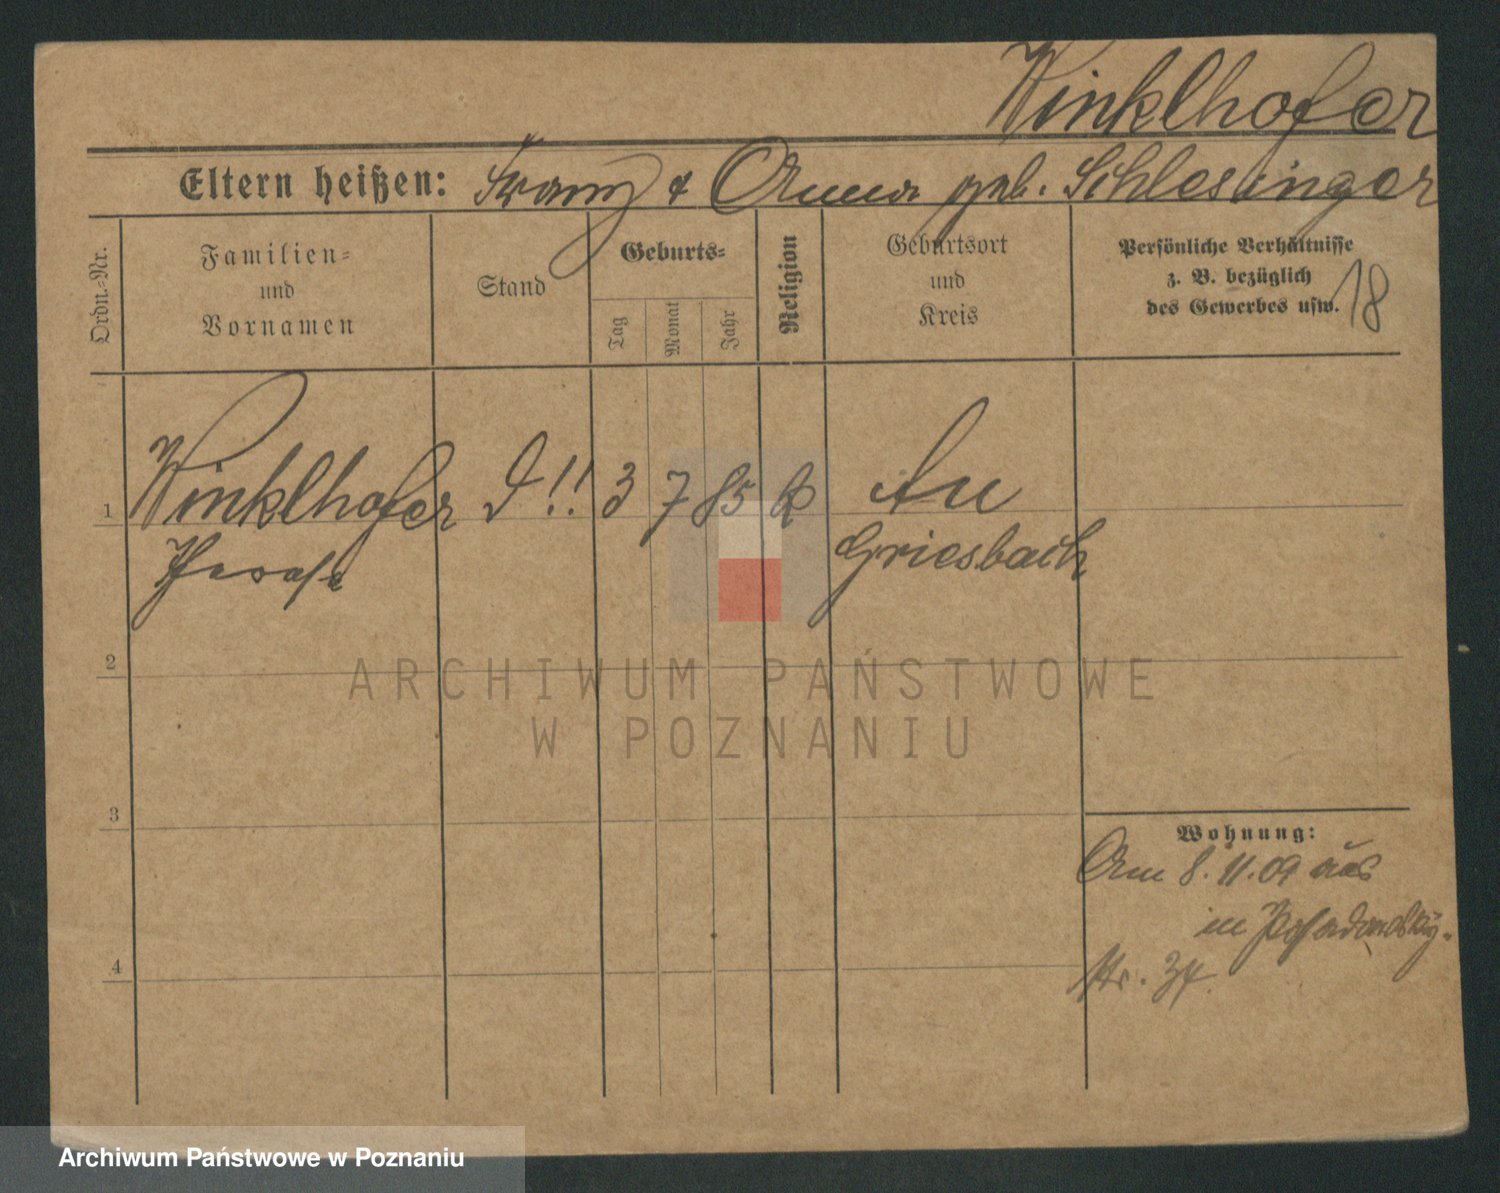 Winklhofer
Eltern heißen: Franz & Anna geb. Schlesinger
Ordn.-Nr.
Familien-
und
Vornamen
Stand
Geburts-
Tag
Monat
Jahr
Religion
Geburtsort
und
Kreis
Persönliche Verhältnisse
z. B. bezüglich
des Gewerbes usw.
18
1
Winklhofer D!! 3 7 85 k Au
Griesbach
2
3
4
Wohnung:
Am 8.11.09 aus
in Posadowsky-
str. 34.
ARCHIWUM PAŃSTWOWE
W POZNANIU
Archiwum Państwowe w Poznaniu